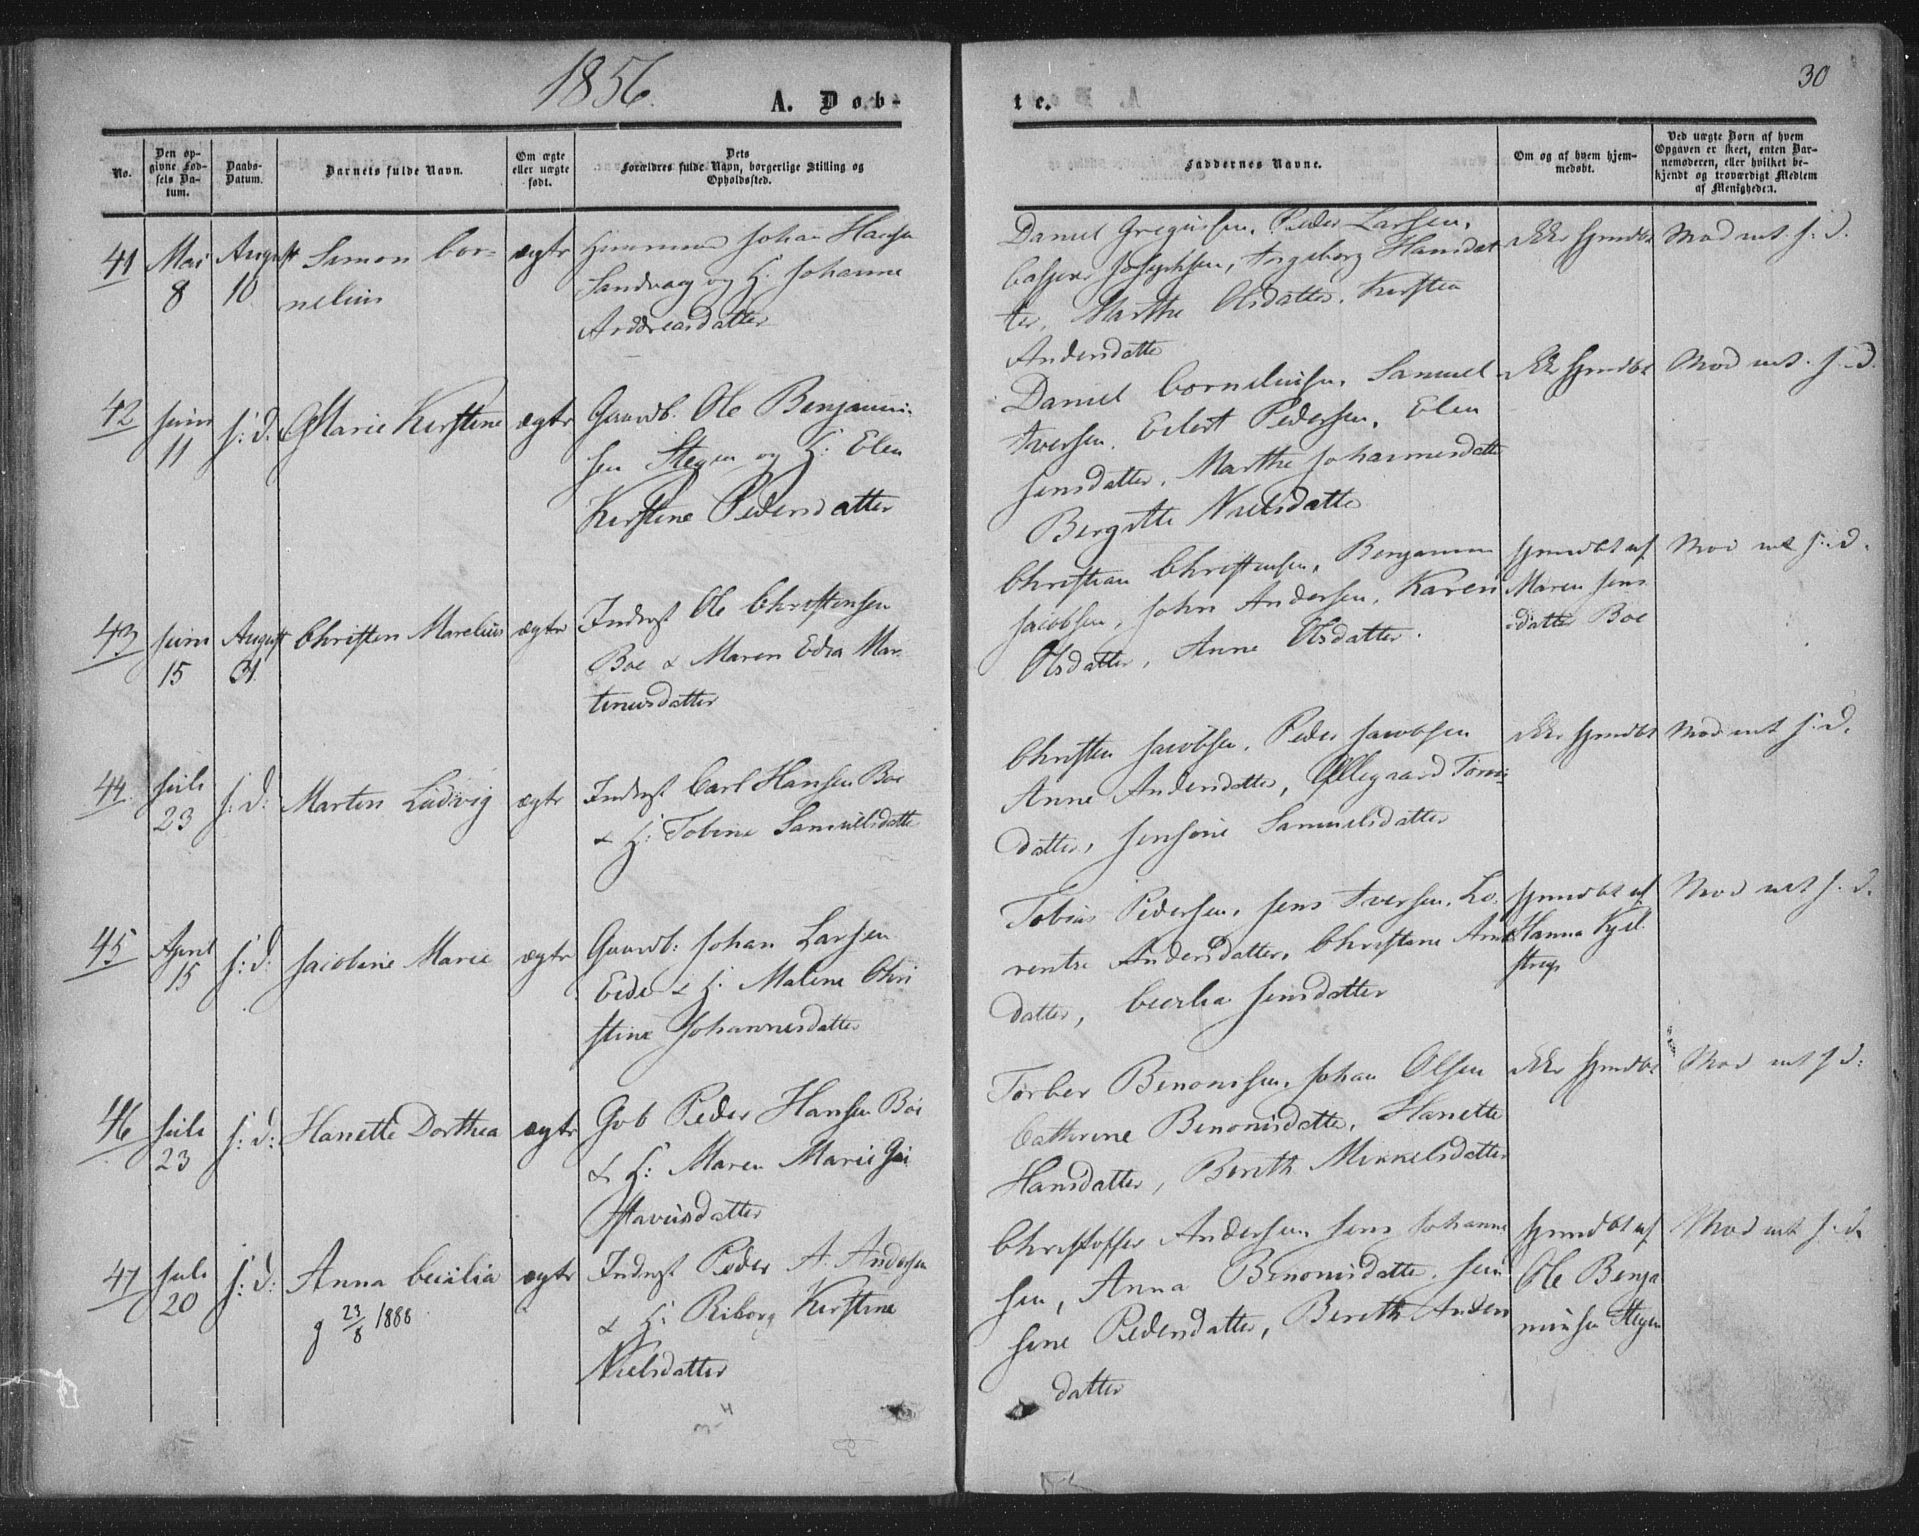 1856.
A. Døb-
te.
30
No.
Den op-
givne Fød-
sels Da-
tum.
Daabs-
Datum.
Barnets fulde Navn.
Om ægte
eller uægte
født.
Dets
Forældres fulde Navn, borgerlige Stilling og
Opholdssted.
Faddernes Navne.
Om og af hvem hjem-
medøbt.
Ved uægte Børn af hvem
Opgaven er skeet, enten Bar-
nemoderen, eller hvilket be-
kjendt og troværdigt Medlem
af Menigheden.
41
Mai
8
August
10
Simon Cor-
nelius
ægte
Johan Hansen
Sandvaag og H: Johanne
Andreasdatter
Daniel Gregussen, Peder Larsen,
Casper Josephsen, Ingeborg Hansdat
ter, Marthe Olsdatter, Kirsten
Andersdatter
Ikke hjmdbt
Mod mt. s. d.
42
Juni
11
s: d:
Marie Kirstine
ægte
Gaardb. Ole Benjamin-
sen Stegen og H: Elen
Kirstine Pedersdatter
Daniel Corneliusen, Samuel
Iversen, Eilert Pedersen, Elen
Jensdatter, Marthe Johannesdatte
Bergitte Nielsdatte
Ikke hjmdbt
Mod mt. s. d.
43
Juni
15
August
31.
Christen Marelius
ægte
Inderst Ole Christensen
Boe & Maren Edea Mar-
tinusdatter
Christian Christensen, Benjamin
Jacobsen, John Andersen, Karen
Olsdatter, Anne Olsdatter.
hjmdbt af
Maren Jens
datter Boe
Mod mt s. d.
44.
Juli
23
s: d:
Martin Ludvig
ægte
Inderst Carl Hansen Boe
& H: Tobine Samuelsdatte
Christen Jacobsen, Peder Jacobsen
Anne Andersdatter, Ellegaard Tønis
datter, Jensine Samuelsdatter
Ikke hjmdbt
Mod mt s. d.
45
April
15
s: d:
Jacobine Marie
ægte
Gaardb: Johan Larsen
Eide & H: Maline Chri
stine Johannesdatter
Tobias Pedersen, Jens Iversen, Lo-
rentse Andersdatter, Christine Arnt
datter, Cecilia Jensdatter
hjmdbt af
Hanna Kjel
strup
Mod mt s. d.
46
Juli
23
s: d:
Hanette Dorthea
ægte
Gdb Peder Hansen Boe
& H: Maren Marie Gu
stavusdatter
Torber Benonisen, Johan Olsen
Cathrine Benonisdatte, Hanette
Hansdatter, Bereth Mikkelsdatter
Ikke hjmdbt
Mod mt s d:
47
Juli
20
s: d:
Anna Cecilia
g 23/8 1888
ægte
Inderst Peder A. Andersen
& H: Riborg Kirstine
Nielsdatter
Christoffer Andersen, Jens Johanne
sen, Anna Benonisdatte, Jen
sine Pedersdatter, Bereth Anders
datter
hjmdbt af
Ole Benja
minsen Stegen
Mod mt s. d.